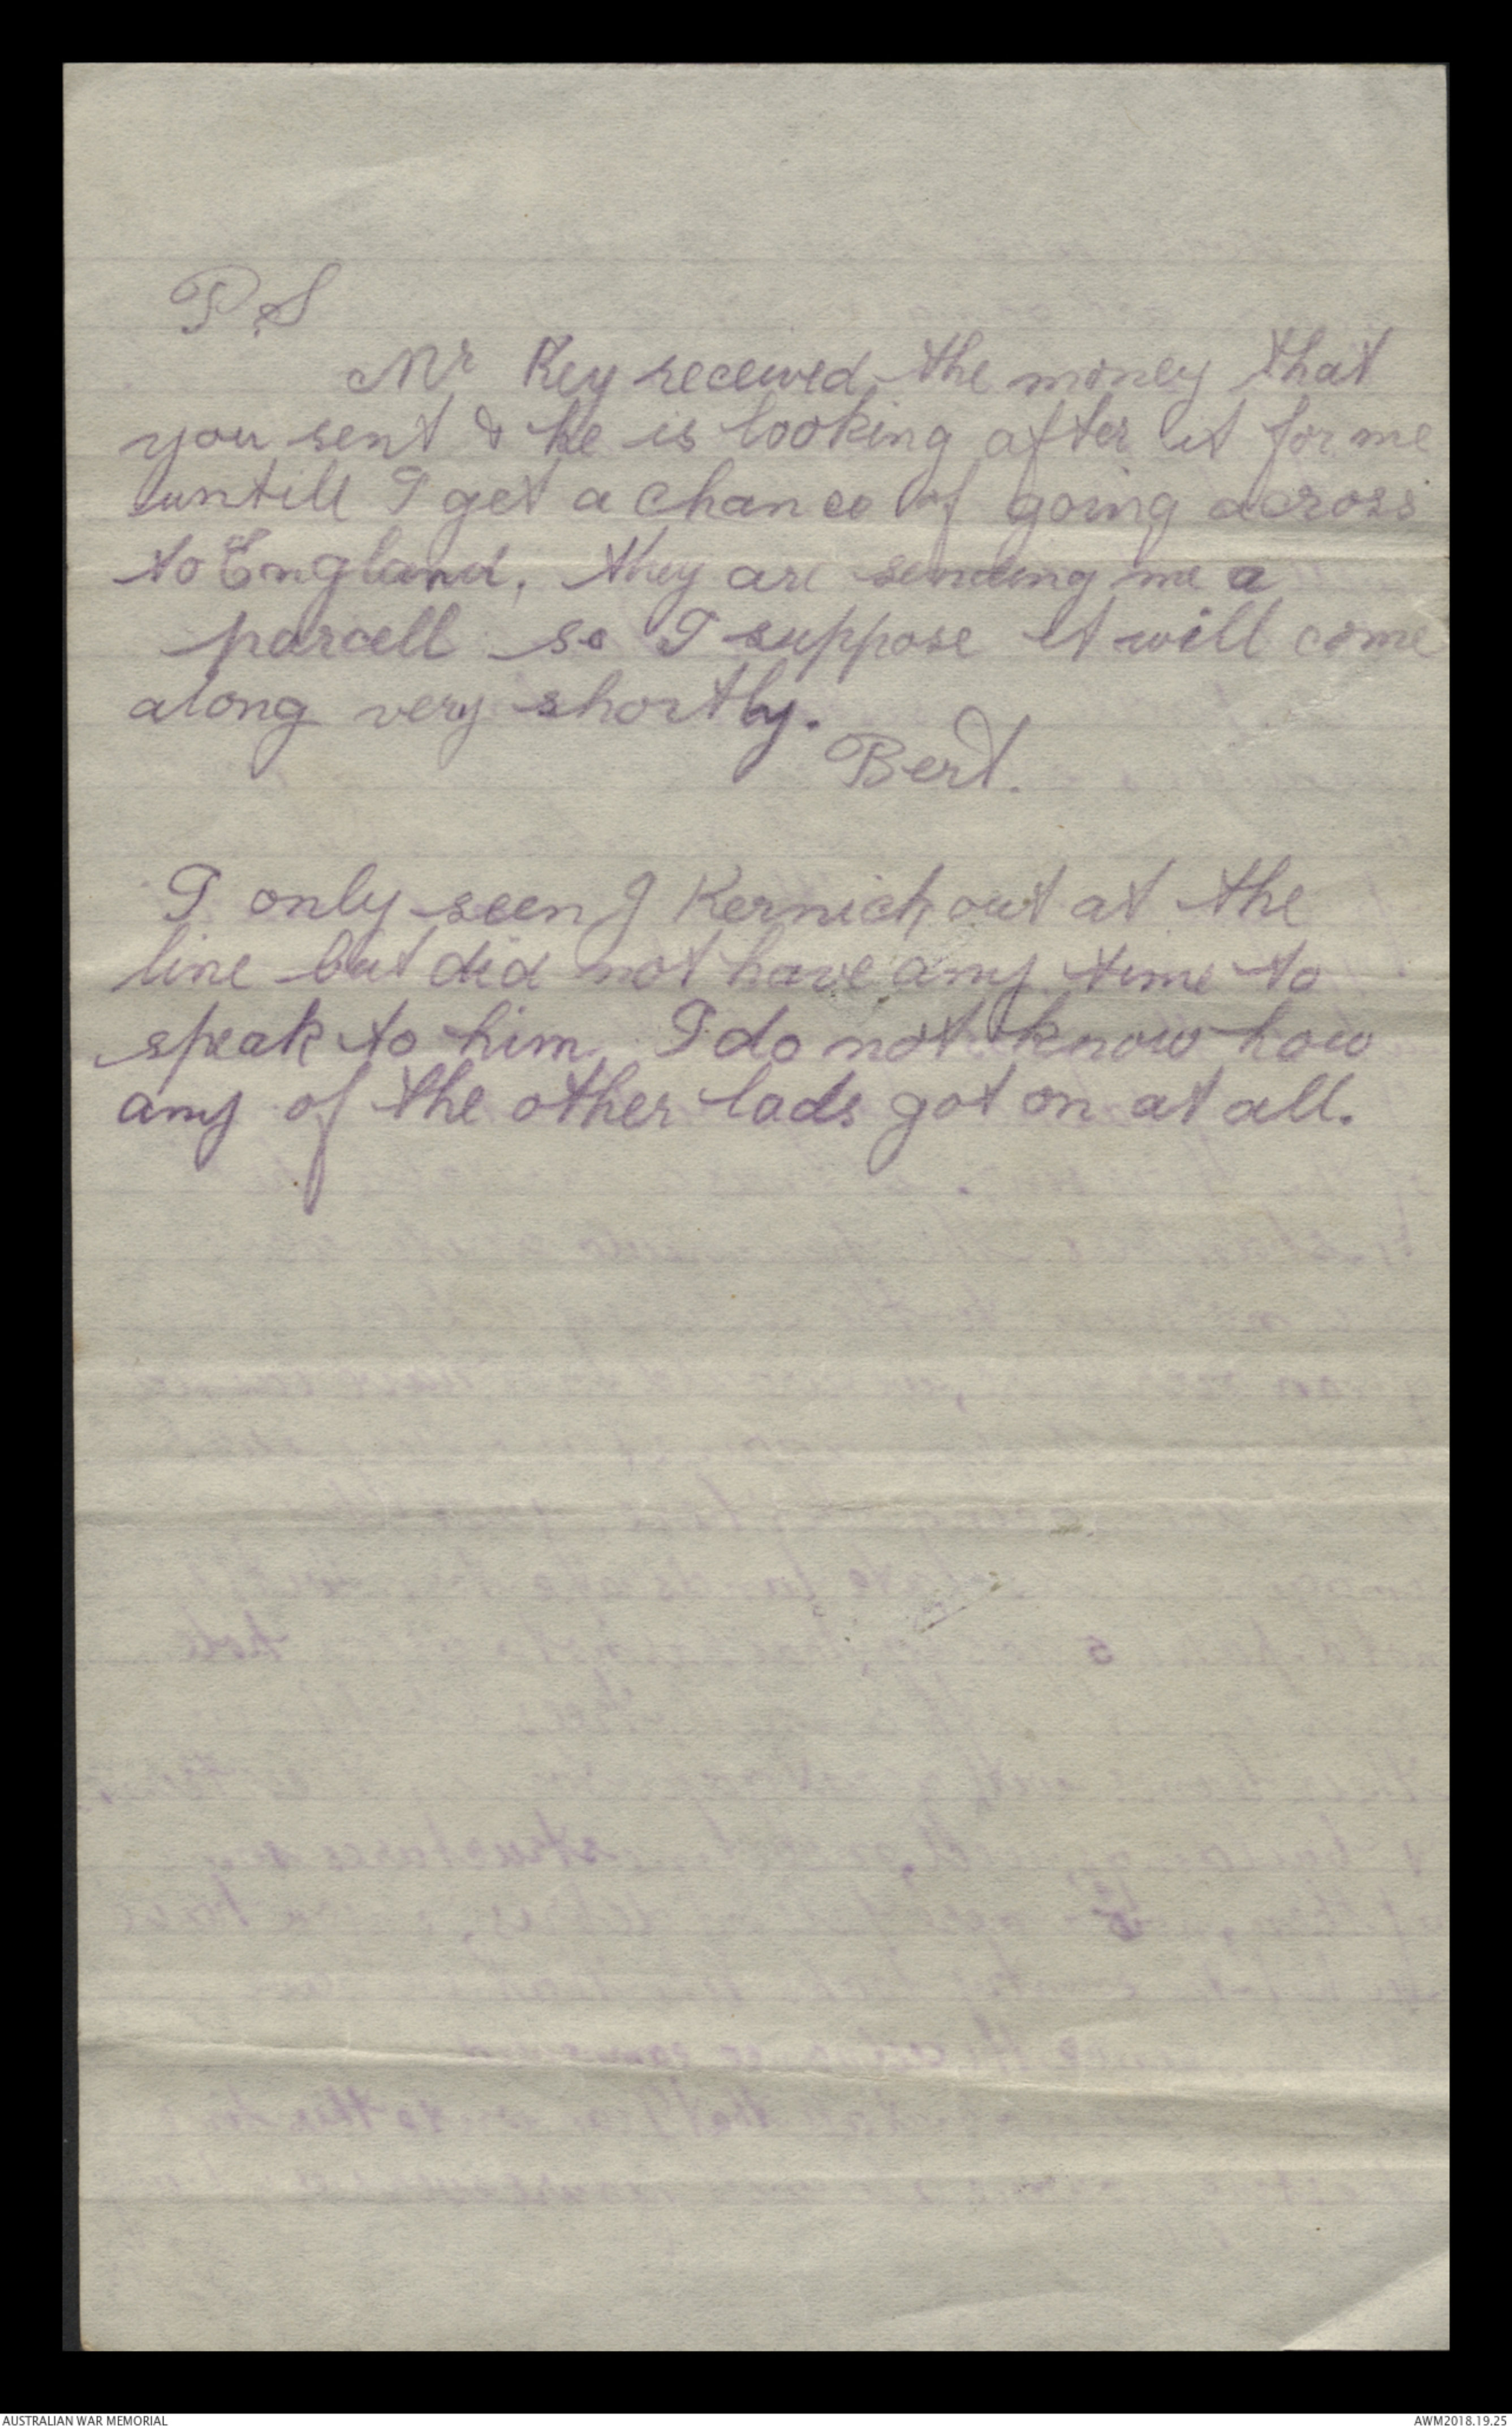 P.S
Mr Key received the money that
you sent & he is looking after it for me
untill I get a chance of going across
to England, they are sending me a
parcell so I suppose it will come
along very shortly.
Bert.
I only seen J Kernich out at the
line but did not have any time to
speak to him. I do not know how
any of the other lads got on at all.
AUSTRALIAN WAR MEMORIAL
AWM2018.19.25